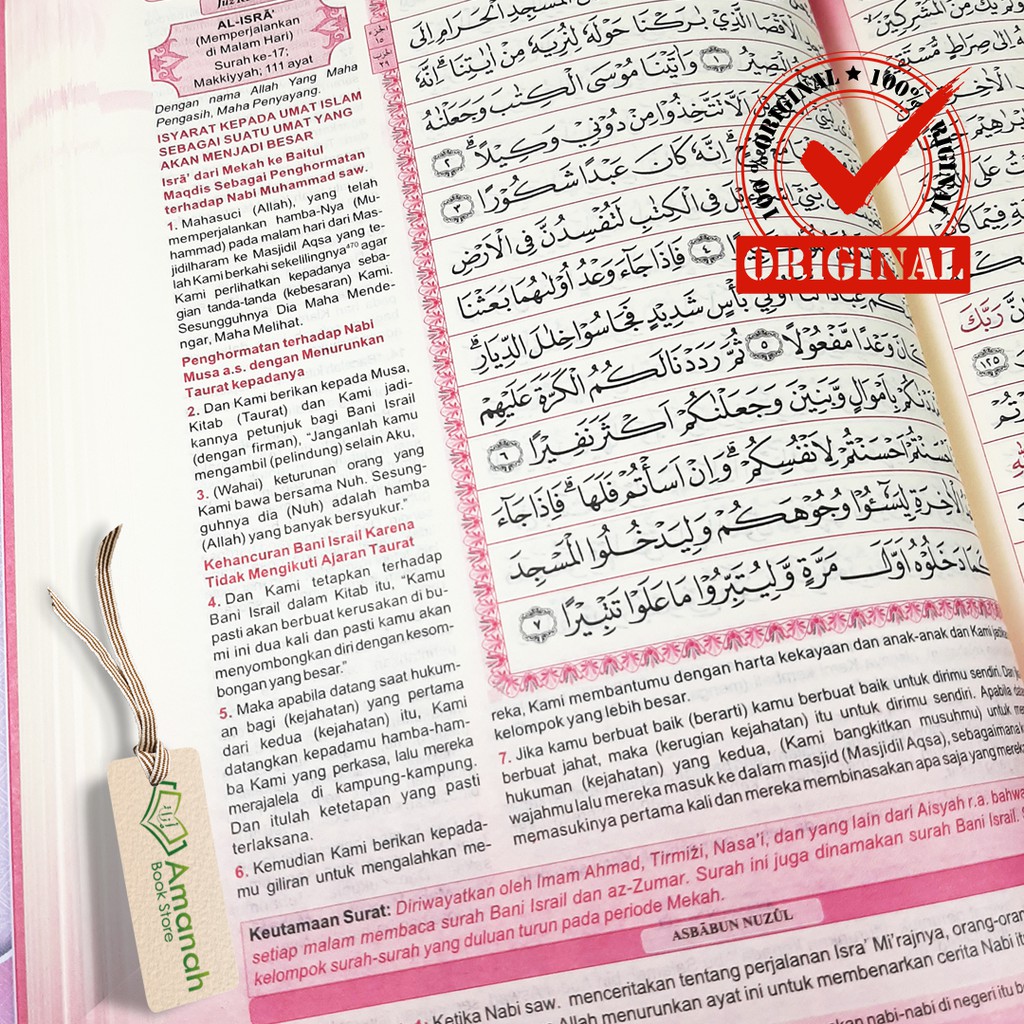 AL-ISRĀ'
(Memperjalankan
di Malam Hari)
Surah ke-17;
Makkiyyah; 111 ayat
Dengan nama Allah Yang Maha
Pengasih, Maha Penyayang.
ISYARAT KEPADA UMAT ISLAM
SEBAGAI SUATU UMAT YANG
AKAN MENJADI BESAR
Isrā' dari Mekah ke Baitul
Maqdis Sebagai Penghormatan
terhadap Nabi Muhammad saw.
1. Mahasuci (Allah), yang telah
memperjalankan hamba-Nya (Mu-
hammad) pada malam hari dari Mas-
jidilharam ke Masjidil Aqsa yang te-
lah Kami berkahi sekelilingnya⁴⁷⁰ agar
Kami perlihatkan kepadanya seba-
gian tanda-tanda (kebesaran) Kami.
Sesungguhnya Dia Maha Mende-
ngar, Maha Melihat.
Penghormatan terhadap Nabi
Musa a.s. dengan Menurunkan
Taurat kepadanya
2. Dan Kami berikan kepada Musa,
Kitab (Taurat) dan Kami jadi-
kannya petunjuk bagi Bani Israil
(dengan firman), "Janganlah kamu
mengambil (pelindung) selain Aku,
3. (Wahai) keturunan orang yang
Kami bawa bersama Nuh. Sesung-
guhnya dia (Nuh) adalah hamba
(Allah) yang banyak bersyukur."
Kehancuran Bani Israil Karena
Tidak Mengikuti Ajaran Taurat
4. Dan Kami tetapkan terhadap
Bani Israil dalam Kitab itu, "Kamu
pasti akan berbuat kerusakan di bu-
mi ini dua kali dan pasti kamu akan
menyombongkan diri dengan kesom-
bongan yang besar."
5. Maka apabila datang saat hukum-
an bagi (kejahatan) yang pertama
dari kedua (kejahatan) itu, Kami
datangkan kepadamu hamba-ham-
ba Kami yang perkasa, lalu mereka
merajalela di kampung-kampung.
Dan itulah ketetapan yang pasti
terlaksana.
6. Kemudian Kami berikan kepada-
mu giliran untuk mengalahkan me-
الْاَقْصَا الَّذِيْ بٰرَكْنَا حَوْلَهٗ لِنُرِيَهٗ مِنْ اٰيٰتِنَاۗ اِنَّهٗ
الْبَصِيْرُ ١ وَاٰتَيْنَا مُوْسَى الْكِتٰبَ وَجَعَلْنٰهُ
اَلَّا تَتَّخِذُوْا مِنْ دُوْنِيْ وَكِيْلًاۗ ٢
اِنَّهٗ كَانَ عَبْدًا شَكُوْرًا ٣
فِى الْكِتٰبِ لَتُفْسِدُنَّ فِى الْاَرْضِ
٤ فَاِذَا جَاۤءَ وَعْدُ اُوْلٰىهُمَا بَعَثْنَا
بَأْسٍ شَدِيْدٍ فَجَاسُوْا خِلٰلَ الدِّيَارِۗ
كَانَ وَعْدًا مَّفْعُوْلًا ٥ ثُمَّ رَدَدْنَا لَكُمُ الْكَرَّةَ عَلَيْهِمْ
بِاَمْوَالٍ وَّبَنِيْنَ وَجَعَلْنٰكُمْ اَكْثَرَ نَفِيْرًا ٦
اَحْسَنْتُمْ لِاَنْفُسِكُمْۗ وَاِنْ اَسَأْتُمْ فَلَهَاۗ فَاِذَا جَاۤءَ
الْاٰخِرَةِ لِيَسٗۤـُٔوْا وُجُوْهَكُمْ وَلِيَدْخُلُوا الْمَسْجِدَ
دَخَلُوْهُ اَوَّلَ مَرَّةٍ وَّلِيُتَبِّرُوْا مَا عَلَوْا تَتْبِيْرًا ٧
reka, Kami membantumu dengan harta kekayaan dan anak-anak dan Kami
kelompok yang lebih besar.
7. Jika kamu berbuat baik (berarti) kamu berbuat baik untuk dirimu sendiri. Dan
berbuat jahat, maka (kerugian kejahatan) itu untuk dirimu sendiri. Apabila
hukuman (kejahatan) yang kedua, (Kami bangkitkan musuhmu) untuk
wajahmu lalu mereka masuk ke dalam masjid (Masjidil Aqsa), sebagaimana
memasukinya pertama kali dan mereka membinasakan apa saja yang mereka
Keutamaan Surat: Diriwayatkan oleh Imam Ahmad, Tirmiżi, Nasa'i, dan yang lain dari Aisyah r.a. bahwa
setiap malam membaca surah Bani Israil dan az-Zumar. Surah ini juga dinamakan surah Bani Israil.
kelompok surah-surah yang duluan turun pada periode Mekah.
ASBĀBUN NUZŪL
1: Ketika Nabi saw. menceritakan tentang perjalanan Isra' Mi'rajnya,
Allah menurunkan ayat ini untuk membenarkan cerita Nabi
nabi-nabi di negeri itu
رَبَّكَ
١٢٥
100% ORIGINAL ★ 100% ORIGINAL
ORIGINAL
Amanah
Book Store